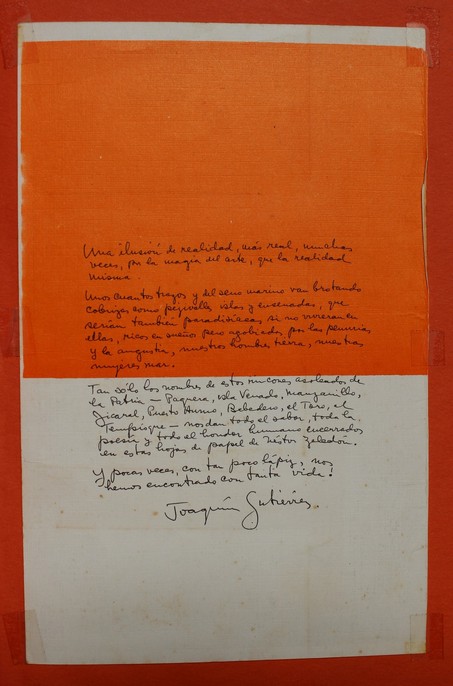 Una ilusión de realidad, más real, muchas
veces, por la magia del arte, que la realidad
misma.
Unos cuantos trazos y del seno marino van brotando
cobrizas como pejivalles islas y ensenadas, que
serían también paradisíacas si no vivieran en
ellas, ricos en sueños pero agobiados por las penurias
y la angustia, nuestros hombres tierra, nuestras
mujeres mar.
Tan sólo los nombres de estos rincones asoleados de
la Patria – Paquera, isla Venado, Manzanillo,
Jicaral, Puerto Humo, Bebedero, el Toro, el
Tempisque – nos dan todo el sabor, toda la
poesía y todo el hondor humano encerrados
en estas hojas de papel de Néstor Zeledón.
Y pocas veces, con tan poco lápiz, nos
hemos encontrado con tanta vida!
Joaquín Gutiérrez